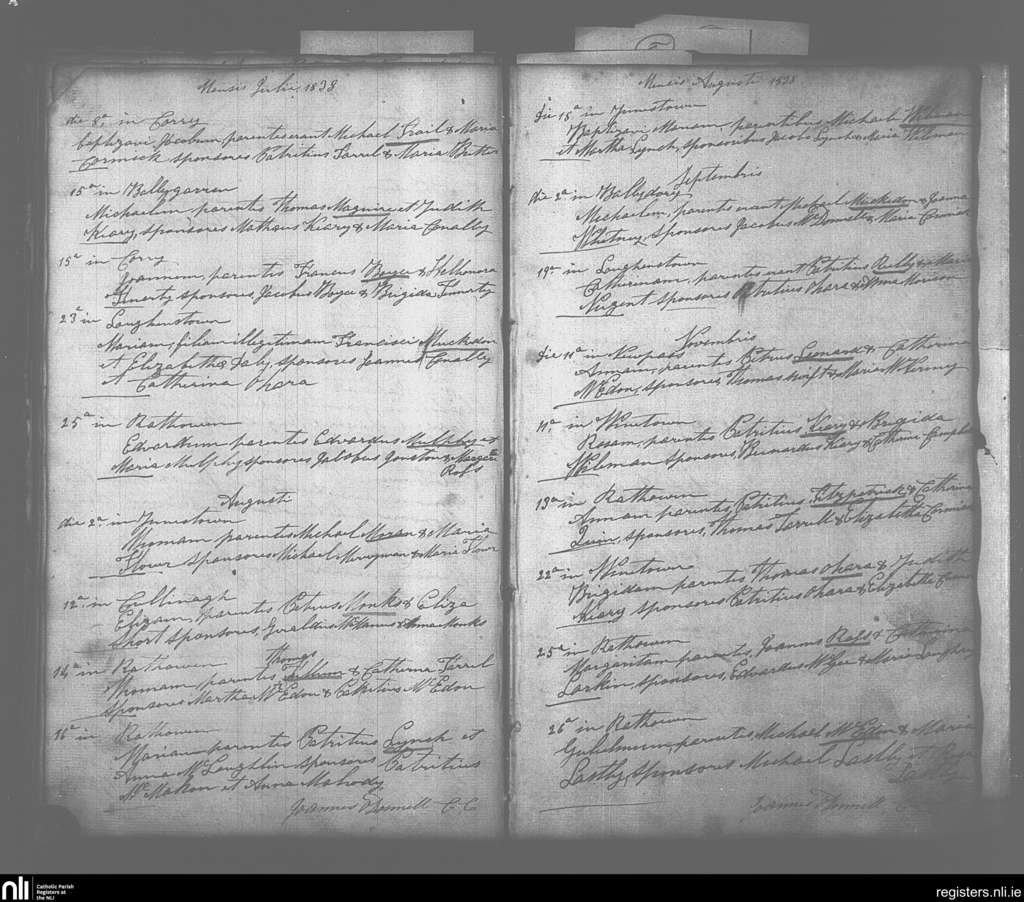 Mensis Julii 1838
die 8ª in Corry
baptizavi Jacobum, parentes erant Michael Frail & Maria
Cormick sponsores Patritius Farrel & Maria
15ª in Ballygarran
Michaelem parentes Thomas Maguire et Judith
Kiary, sponsores Matheus Kiary & Maria Conally
15ª in Corry
Joannem, parentes Francus Boyce & Helhonora
Finerty, sponsores Jacobus Boyce & Brigida Finerty
23ª in Loughenstown
Mariam, filiam illegitimam Francisci Muckedon
et Elizabethæ Daly, sponsores Joannes Conally
et Catherina Ohara
25ª in Rathowen
Edvardum parentes Edvardus Mulphy et
Maria Mulphy sponsores Jacobus Jonston &
Ross
Augusti
die 2ª in
Thomam parentes Michael Moran & Maria
Flower sponsores Michael Merryman & Maria Flower
12ª in Cullinagh
Elizam, parentes Petrus Monks & Eliza
Short sponsores, Geraldus McManus & Anna Monks
14ª in Rathowen
Thomas
Thomam, parentes & Catherina Farrel
sponsores Martha McEdon & Patritius McEdon
16ª in Rathowen
Mariam parentes Patritius Lynch et
Anna McLoughlin sponsores Patritius
McMahon et Anna
Joannes O'Donnell C.C.
Mensis Augusti 1838
die 18ª in
Baptizavi Mariam, parentibus Michaele
et Martha Lynch, sponsoribus Jacobo Lynch & Maria
Septembris
die 2ª in Ballydorey
Michaelem, parentes erant Michael Muckedon & Joanna
Whitney, Sponsores Jacobus McDonnell & Maria
19ª in Loughenstown
Catherinam, parentes erant Patritius Reilly & Maria
Nugent sponsores Patritius Ohara & Anna
Novembris
die 11ª in Newpass
Annam, parentes Petrus Leonard & Catherina
McEdon, sponsores, Thomas & Maria
11ª in Windtown
Rosam, parentes Patritius Leary & Brigida
sponsores, Bernardus Kiary & Catherine
13ª in Rathowen
Annam parentes, Patritius Fitzpatrick & Catherina
Quin, sponsores, Thomas Farrell & Elizabetha
22ª in Windtown
Brigidam parentes Thomas Ohara & Judith
Kiary sponsores Patritius Ohara & Elizabetha
25ª in Rathowen
Margaritam parentes, Joannes Ross & Catharina
Larkin, sponsores, Edvardus & Maria
26ª in Rathowen
Gulielmum, parentes, Michael McEdon & Maria
Lastly, sponsores Michael Lastly &
Lastly
Joannes O'Donnell
nli
Catholic Parish
Registers at
the NLI
registers.nli.ie